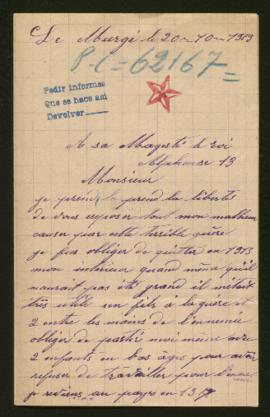 Le Murgé le 20-10-1919
P-C=62167=
Pedir informes
Que se hace asi
Devolver
A sa Magesté le roi
Alphonse 13
Monsieur
je prend la liberté
de vous exposer tout mon malheur
causer par cette terrible guère
je fus obliger de quitter en 1915
mon intérieur quand même qu'il
naurait pas été grand il métait
très utile un fils à la guère et
2 entre les mains de l'ennemie
obliger de partir moi meme avec
2 enfants en bas âge pour avoir
refuser de travailler pour
je reviens au payes en